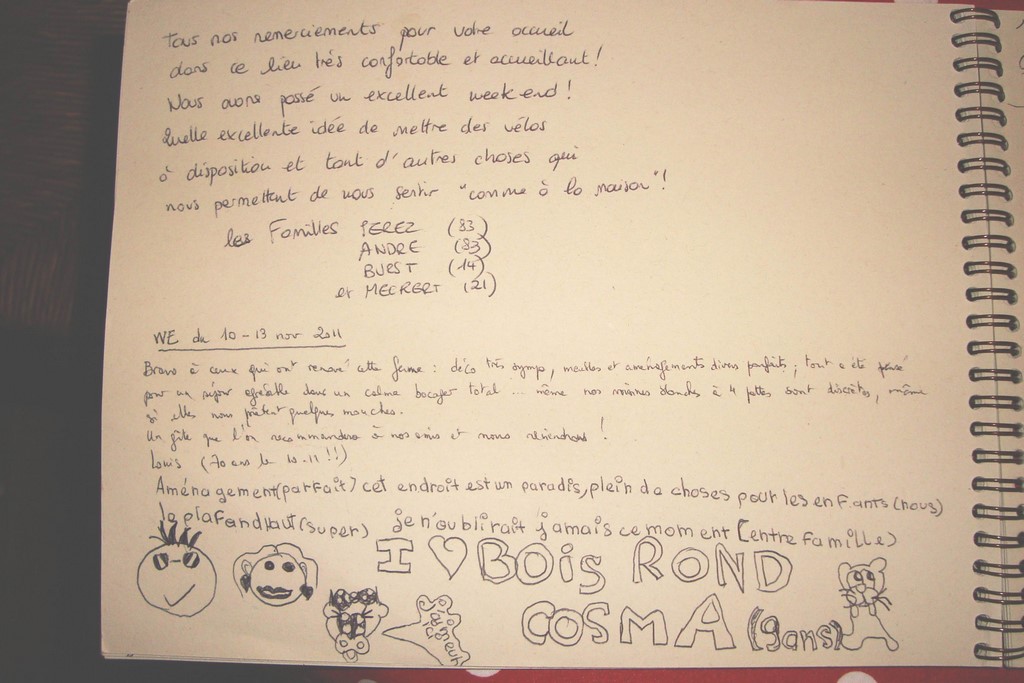 Tous nos remerciements pour votre accueil
dans ce lieu très confortable et accueillant !
Nous avons passé un excellent week end !
Quelle excellente idée de mettre des vélos
à disposition et tant d'autres choses qui
nous permettent de nous sentir "comme à la maison" !
les Familles PEREZ (83)
ANDRE (83)
BUEST (14)
et MECRERT (21)
WE du 10-13 nov 2011
Bravo à ceux qui ont renové cette ferme : déco très sympa, meubles et aménagements divers parfaits ; tout a été pensé
pour un séjour agréable dans un calme bocager total ... même nos voisines blondes à 4 pattes sont discrètes, même
si elles nous prêtent quelques mouches.
Un gîte que l'on recommandera à nos amis et nous reviendrons !
Louis (70 ans le 10.11 !!)
Aménagement (parfait) cet endroit est un paradis, plein da choses pour les enfants (nous)
la plafand Haut (super) je n'oublirait jamais ce moment [entre famille)
I ♡ BOis ROND
COSMA (9ans)
J'aime ici meuh